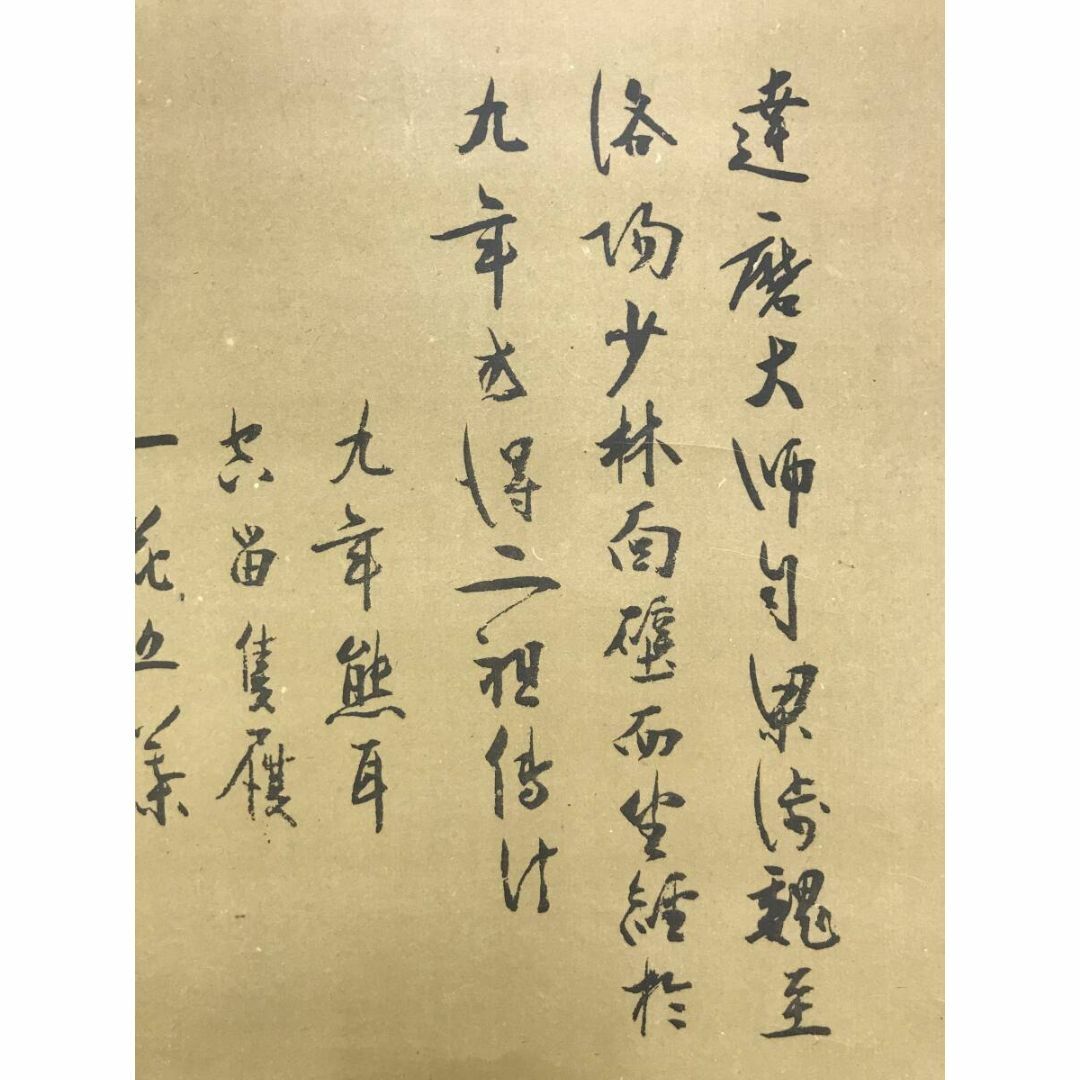 達磨大师自梁涉魏至
洛陽少林面壁而坐經於
九年方得二祖傳法
九年熊耳
空留隻履
一花五葉